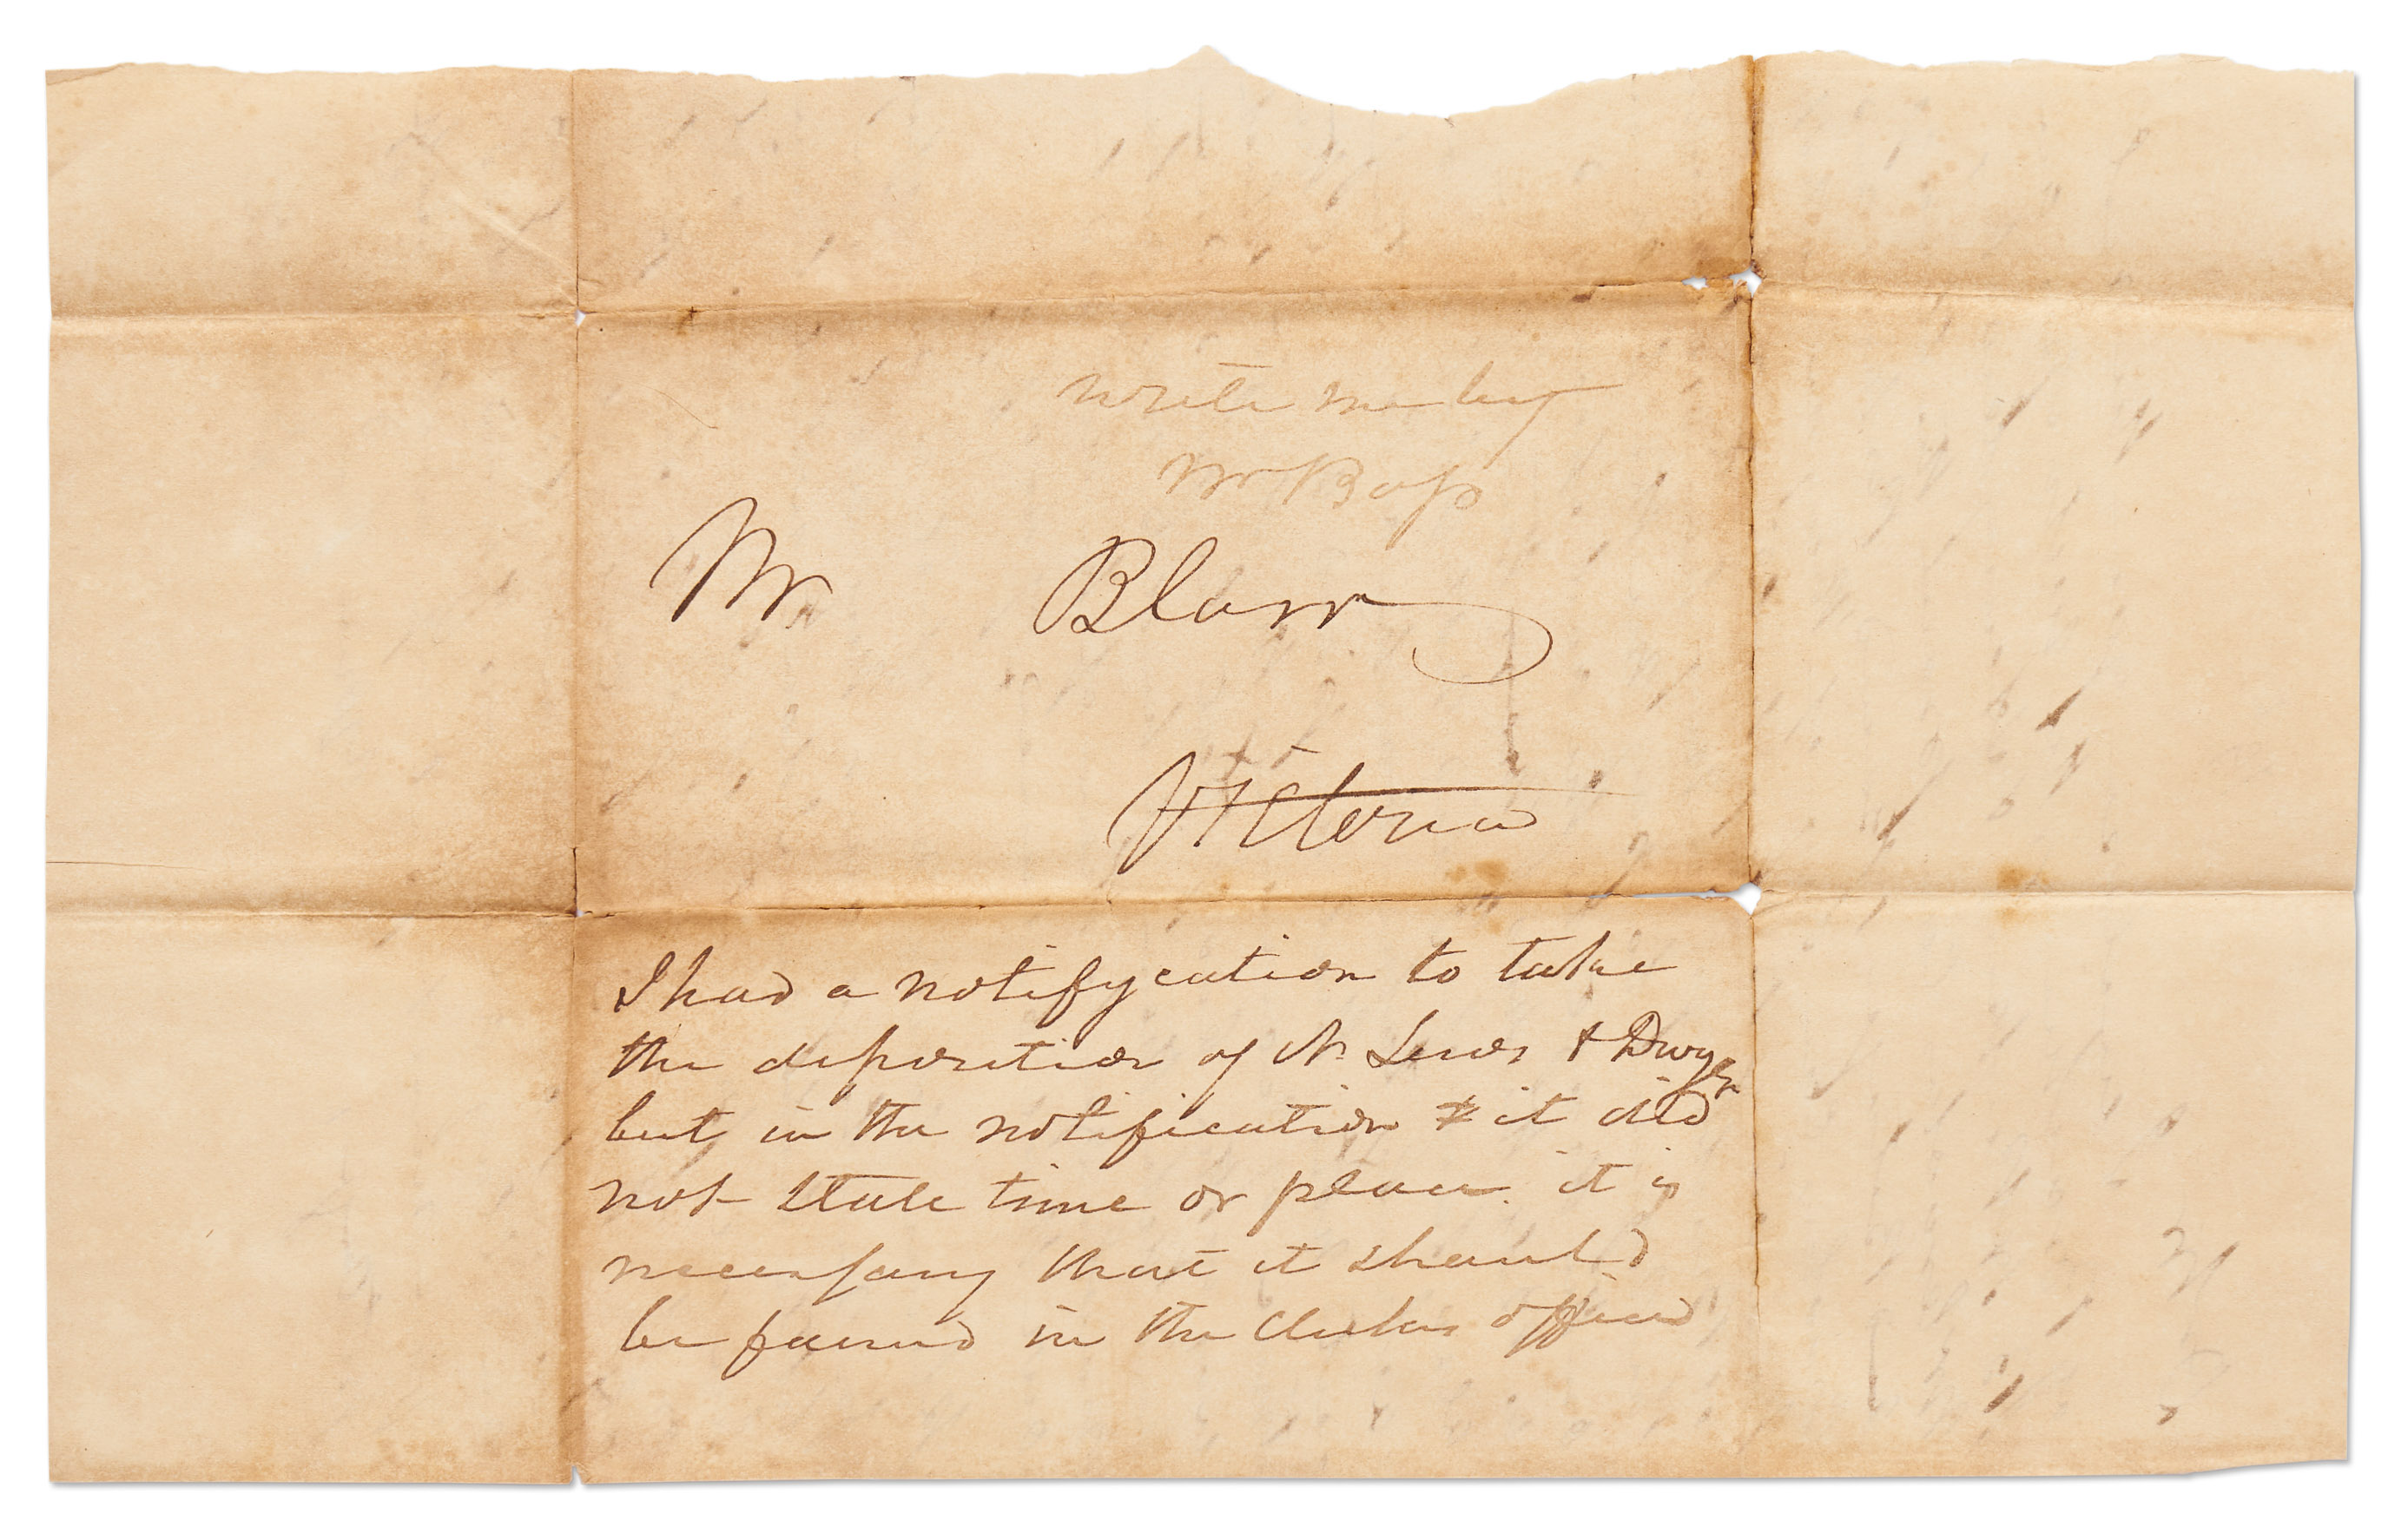 write me by
Mr Bass
Mr Blair
Victoria
I had a notifycation to take
the deposition of N. Lewis & Dwyer
but in the notification it did
not state time or place. it is
necessary that it should
be found in the Clerks office